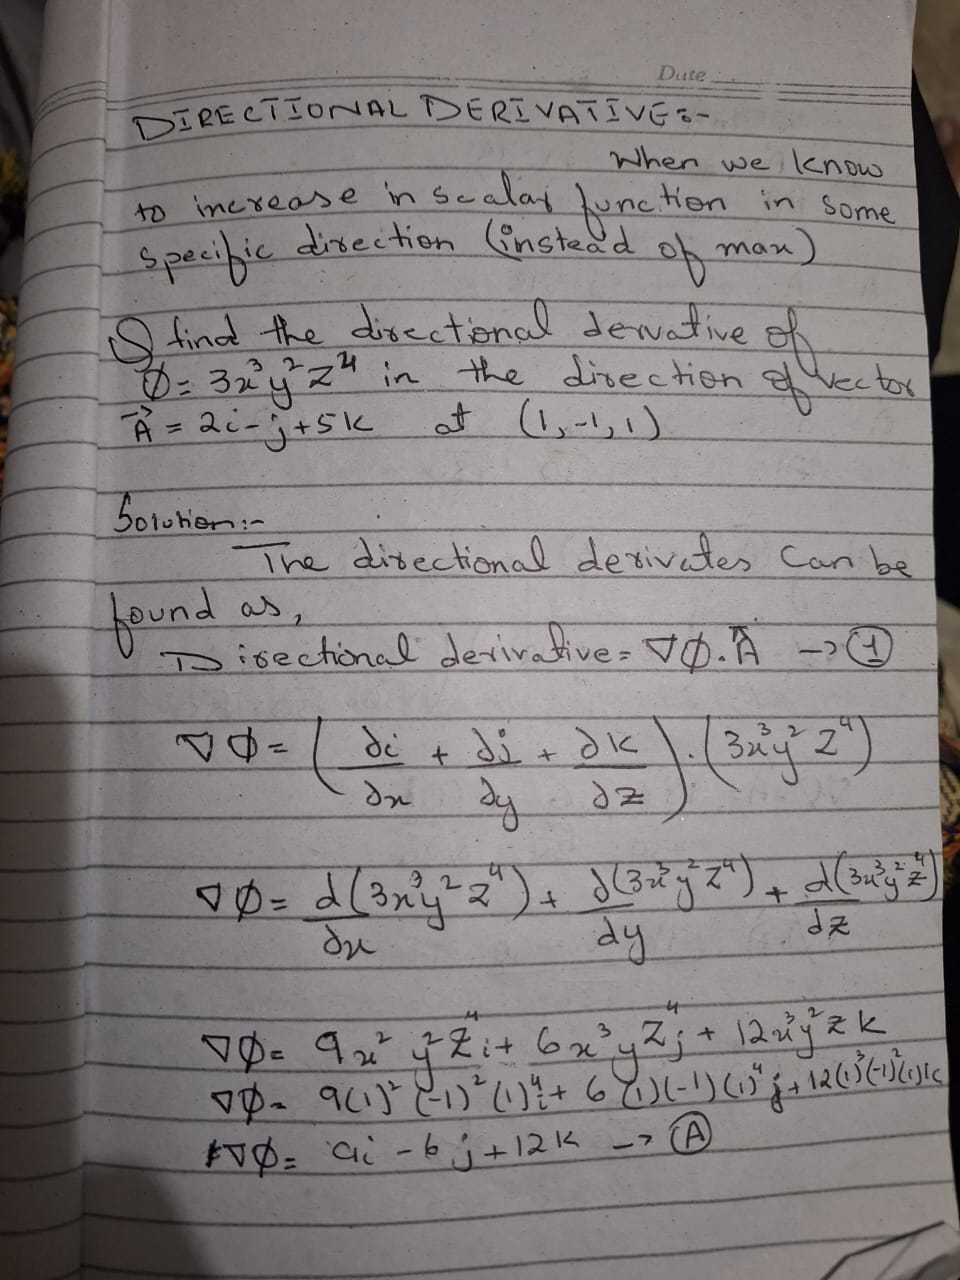 Date
DIRECTIONAL DERIVATIVE:-
When we know
to increase in scalar function in some
specific direction (instead of max)
Q find the directional dervative of
Ø = 3x³y²z⁴ in the direction of vector
A⃗ = 2i-j+5k at (1,-1,1)
Solution:-
The directional derivates can be
found as,
Directional derivative = ∇Ø.A⃗ → ①
∇Ø = (∂i/∂x + ∂j/∂y + ∂k/∂z).(3x³y²z⁴)
∇Ø = d(3x³y²z⁴)/∂x + d(3x³y²z⁴)/dy + d(3x³y²z⁴)/dz
∇Ø = 9x²y²z⁴i + 6x³yz⁴j + 12x³y²zk
∇Ø = 9(1)²(-1)²(1)⁴i + 6(1)(-1)(1)⁴j + 12(1)³(-1)²(1)k
∇Ø = 9i - 6j + 12k → Ⓐ